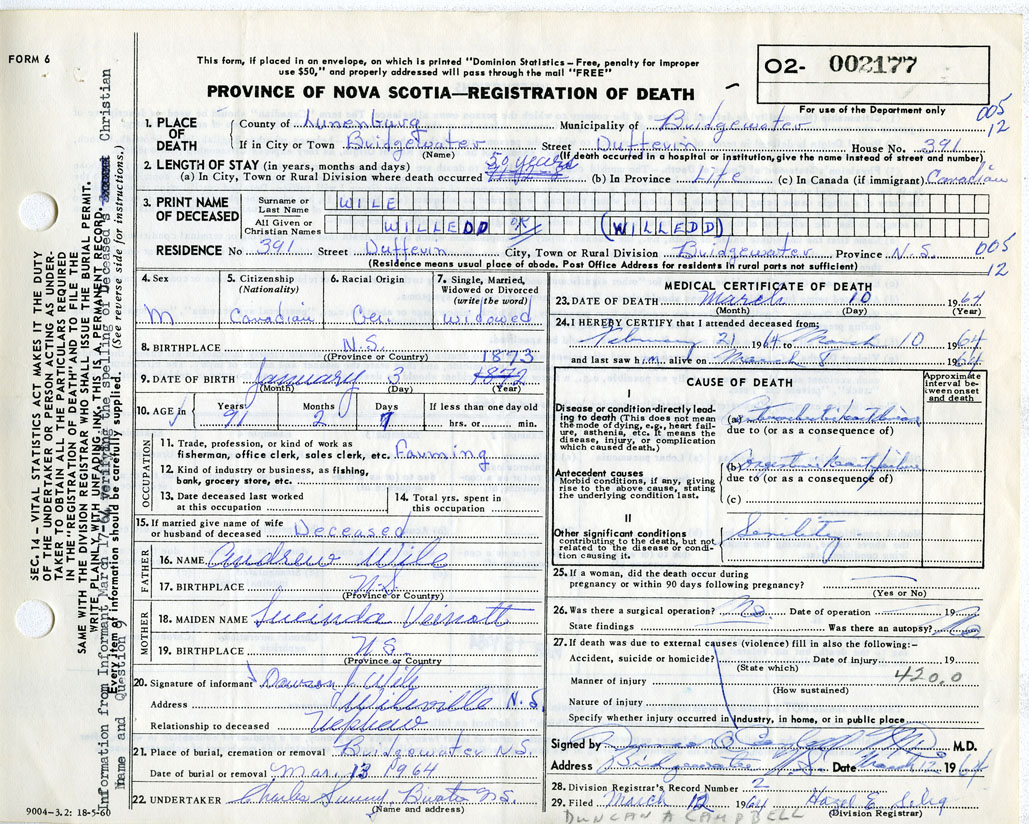 FORM 6
This form, if placed in an envelope, on which is printed "Dominion Statistics - Free, penalty for improper
use $50," and properly addressed will pass through the mail "FREE"
PROVINCE OF NOVA SCOTIA—REGISTRATION OF DEATH
02- 002177
For use of the Department only
005
12
1. PLACE OF DEATH
County of Lunenburg Municipality of Bridgewater
If in City or Town Bridgewater Street Dufferin House No. 391
(Name) (If death occurred in a hospital or institution, give the name instead of street and number)
2. LENGTH OF STAY (in years, months and days) 50 years
(a) In City, Town or Rural Division where death occurred (b) In Province Life (c) In Canada (if immigrant) Canadian
3. PRINT NAME OF DECEASED
Surname or Last Name WILE
All Given or Christian Names WILLEDD OK (WILLEDD)
RESIDENCE No. 391 Street Dufferin City, Town or Rural Division Bridgewater Province N.S.
005
12
(Residence means usual place of abode. Post Office Address for residents in rural parts not sufficient)
4. Sex
M
5. Citizenship
(Nationality)
Canadian
6. Racial Origin
Ger.
7. Single, Married,
Widowed or Divorced
(write the word)
Widowed
8. BIRTHPLACE N.S.
(Province or Country) 1873
9. DATE OF BIRTH January 3 1872
(Month) (Day) (Year)
10. AGE in Years Months Days If less than one day old
91 2 7 hrs. or min.
OCCUPATION
11. Trade, profession, or kind of work as
fisherman, office clerk, sales clerk, etc. Farming
12. Kind of industry or business, as fishing,
bank, grocery store, etc.
13. Date deceased last worked
at this occupation
14. Total yrs. spent in
this occupation
15. If married give name of wife
or husband of deceased Deceased
FATHER
16. NAME Andrew Wile
17. BIRTHPLACE N.S.
(Province or Country)
MOTHER
18. MAIDEN NAME Lucinda Veinott
19. BIRTHPLACE N.S.
(Province or Country
20. Signature of informant Dawson Wile
Address Wileville N.S.
Relationship to deceased Nephew
21. Place of burial, cremation or removal Bridgewater N.S.
Date of burial or removal Mar. 13 1964
22. UNDERTAKER Charles B'water N.S.
(Name and address)
9004-3.2: 18-5-60
MEDICAL CERTIFICATE OF DEATH
23. DATE OF DEATH March 10 1964
(Month) (Day) (Year)
24. I HEREBY CERTIFY that I attended deceased from:
February 21 1964 to March 10 1964
and last saw him alive on March 8 1964
CAUSE OF DEATH
Approximate
interval be-
tween onset
and death
I
Disease or condition directly lead-
ing to death (This does not mean
the mode of dying, e.g., heart fail-
ure, asthenia, etc. It means the
disease, injury, or complication
which caused death.)
(a)
due to (or as a consequence of)
Antecedent causes
Morbid conditions, if any, giving
rise to the above cause, stating
the underlying condition last.
(b) Congestive heart failure
due to (or as a consequence of)
(c)
II
Other significant conditions
contributing to the death, but not
related to the disease or condi-
tion causing it.
Senility
25. If a woman, did the death occur during
pregnancy or within 90 days following pregnancy?
(Yes or No)
26. Was there a surgical operation? No. Date of operation 19
State findings Was there an autopsy? No
27. If death was due to external causes (violence) fill in also the following:-
Accident, suicide or homicide? Date of injury 19
(State which)
Manner of injury 420.0
(How sustained)
Nature of injury
Specify whether injury occurred in industry, in home, or in public place
Signed by M.D.
Address Bridgewater N.S. Date March 12 1964
28. Division Registrar's Record Number 2
29. Filed March 12 1964 Hazel E.
(Division Registrar)
DUNCAN A CAMPBELL
SEC. 14 - VITAL STATISTICS ACT MAKES IT THE DUTY
OF THE UNDERTAKER OR PERSON ACTING AS UNDER-
TAKER TO OBTAIN ALL THE PARTICULARS REQUIRED
IN THE "REGISTRATION OF DEATH" AND TO FILE THE
SAME WITH THE DIVISION REGISTRAR WHO SHALL ISSUE THE BURIAL PERMIT.
WRITE PLAINLY WITH UNFADING INK. THIS IS A PERMANENT RECORD.
Every item of information should be carefully supplied. (See reverse side for instructions.)
Information from Informant March 17-64 verifying the spelling of Deceased's Christian
Name and Question 9